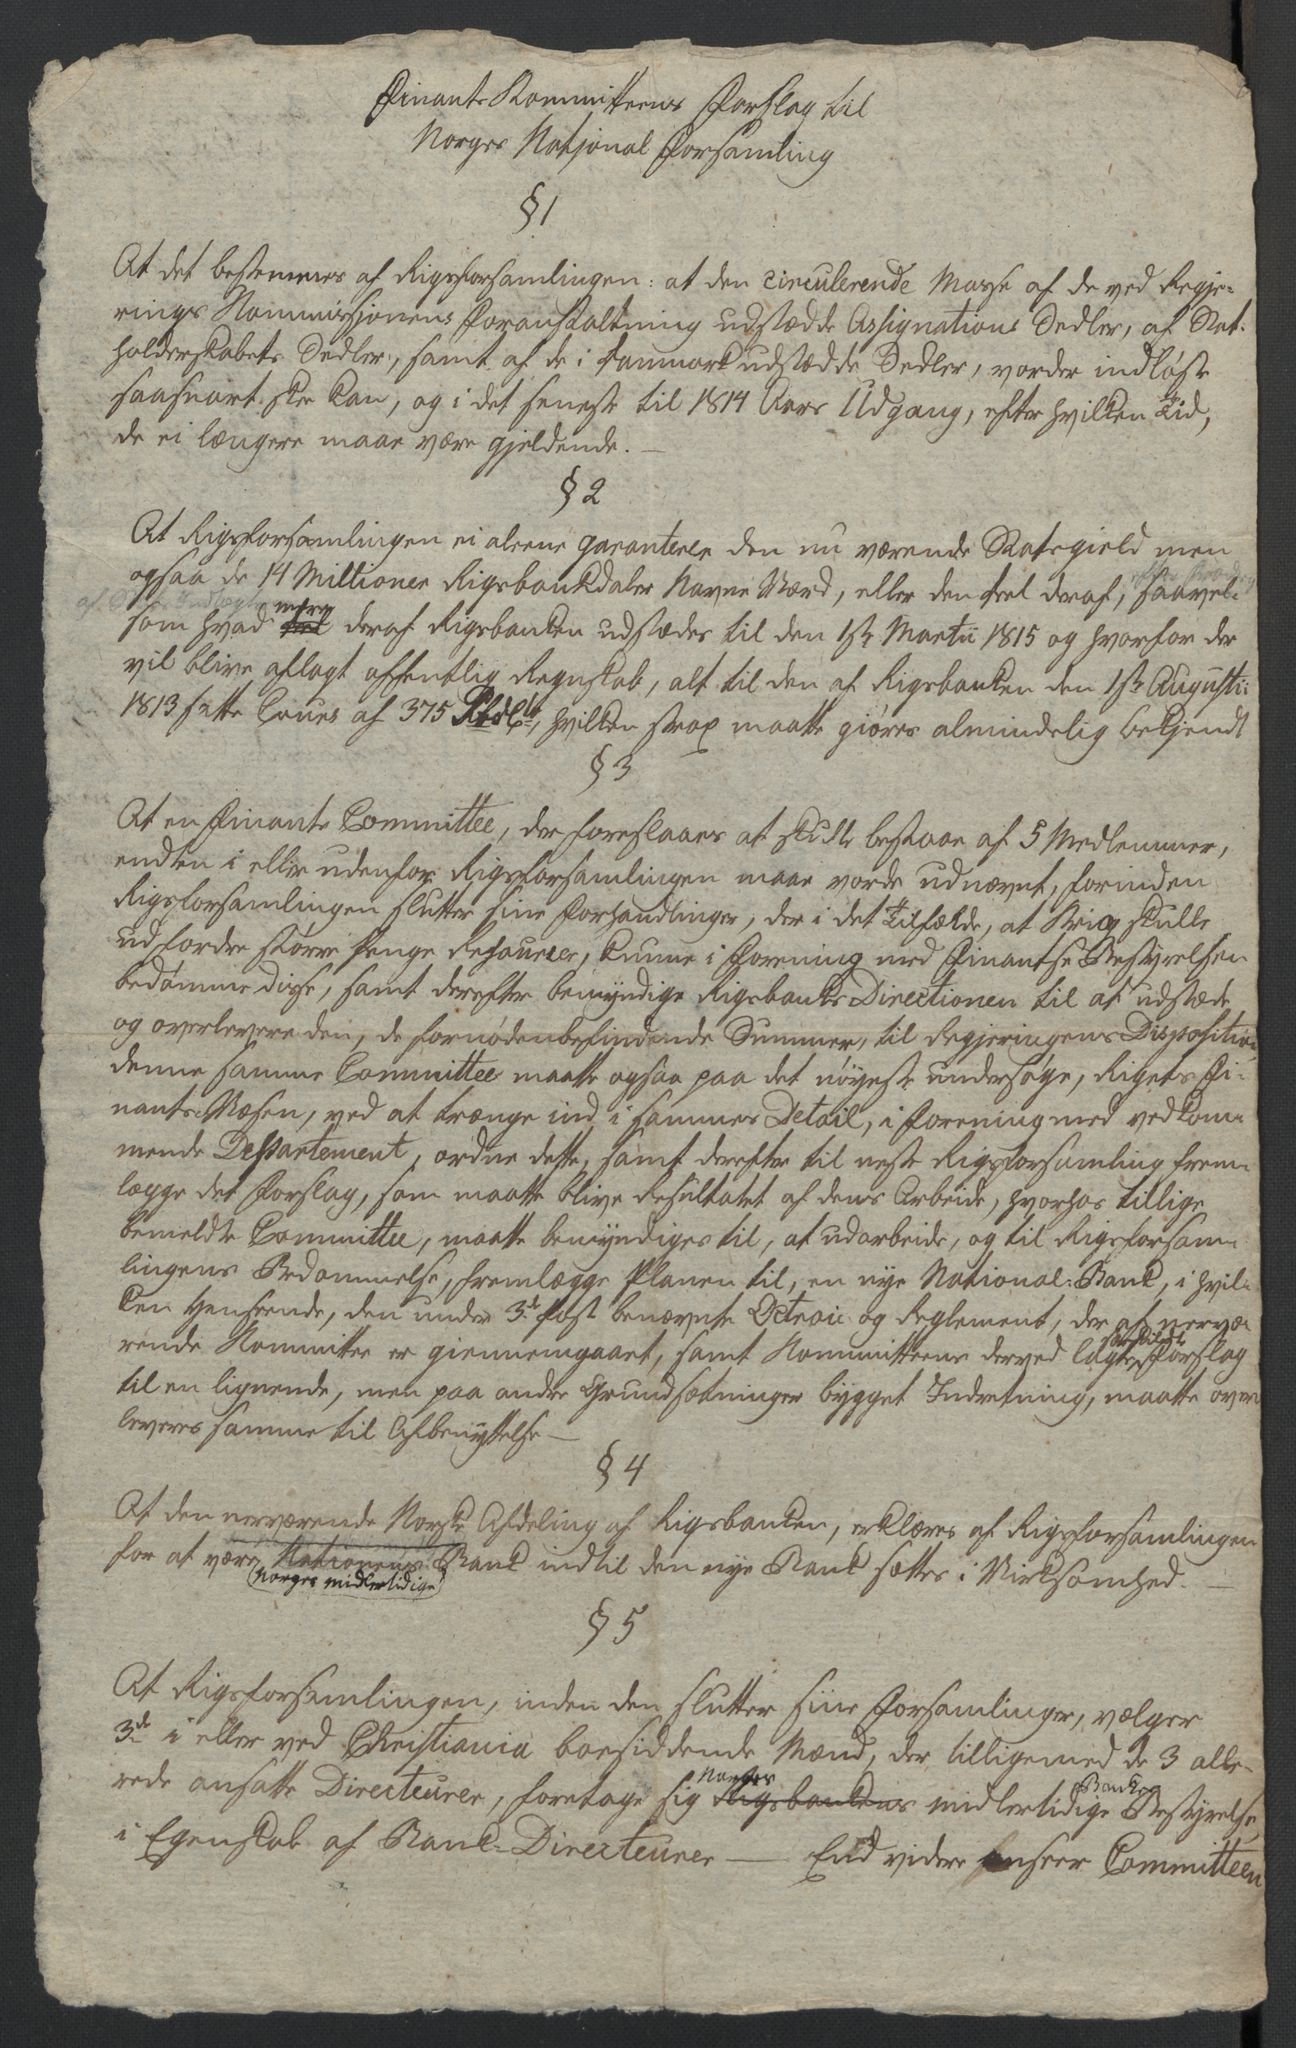 Finants Kommitteens Forslag til
Norges National Forsamling
§ 1
At det bestemmes af Rigsforsamlingen: at den circulerende Masse af de ved Regje-
rings Kommissjonens Foranstaltning udstædde Assignations Sedler, af Stat-
holderskabets Sedler, samt af de i Danmark udstædde Sedler, vorder indløste
saasnart skee kan, og i det seneste til 1814 Aars Udgang, efter hvilken Tid,
de ei længere maae være gjeldende. —
§ 2
At Rigsforsamlingen ei aleene garanterer den nu værende Statsgield men
ogsaa de 14 Millioner Rigsbankdaler Navne Værd, eller den Deel deraf, saavel-
som hvad mere deraf Rigsbanken udstædes til den 1ste Martii 1815 og hvorfor der
vil blive aflagt offentlig Regnskab, alt til den af Rigsbanken den 1ste Augustii
1813 satte Cours af 375 Rbdlr, hvilken strax maatte giøres almindelig bekjendt
§ 3
At en Finants Committee, der foreslaaes at skulle bestaae af 5 Medlemmer,
enten i eller udenfor Rigsforsamlingen maae vorde udnævnt, forinden
Rigsforsamlingen slutter sine Forhandlinger, der i det Tilfælde, at Krig skulle
udfordre større Penge Resourcer, kunne i Forening med Finantse Bestyrelsen
bedømme disse, samt derefter bemyndige Rigsbanks Directionen til at udstæde
og overlevere den, de fornødenbefindende Summer, til Regjeringens Disposition
denne samme Committee maatte ogsaa paa det nøyeste undersøge, Rigets Fi-
nants-Væsen, ved at trænge ind i sammes Detail, i Forening med vedkom-
mende Departement, ordne dette, samt derefter til neste Rigsforsamling frem-
lægge det Forslag, som maatte blive Resultatet af dens Arbeide, hvorhos tillige
bemeldte Committee, maatte bemyndiges til, at udarbeide, og til Rigsforsam-
lingens Bedømmelse, fremlægge Planen til, en nye National-Bank, i hvil-
ken Henseende, den under 3de Post benævnte Octroie og Reglement, der af nervæ-
rende Kommittee er giennemgaaet, samt Kommitteens derved lagte særskildt Forslag
til en lignende, men paa andre Grundsætninger bygget Indretning, maatte over-
leveres samme til Afbenyttelse —
§ 4
At den nerværende Norske Afdeling af Rigsbanken, erklæres af Rigsforsamlingen
for at være Nationens Bank indtil den nye Bank sættes i Virksomhed. —
(Norges midlertidige)
§ 5
At Rigsforsamlingen, inden den slutter sine Forsamlinger, vælger
3de i eller ved Christiania boesiddende Mænd, der tilligemed de 3 alle-
rede ansatte Directeurer, foretage sig Norges Rigsbankens midlertidige Banks Bestyrelse
i Egenskab af Bank-Directeurer — End videre anseer Committeen